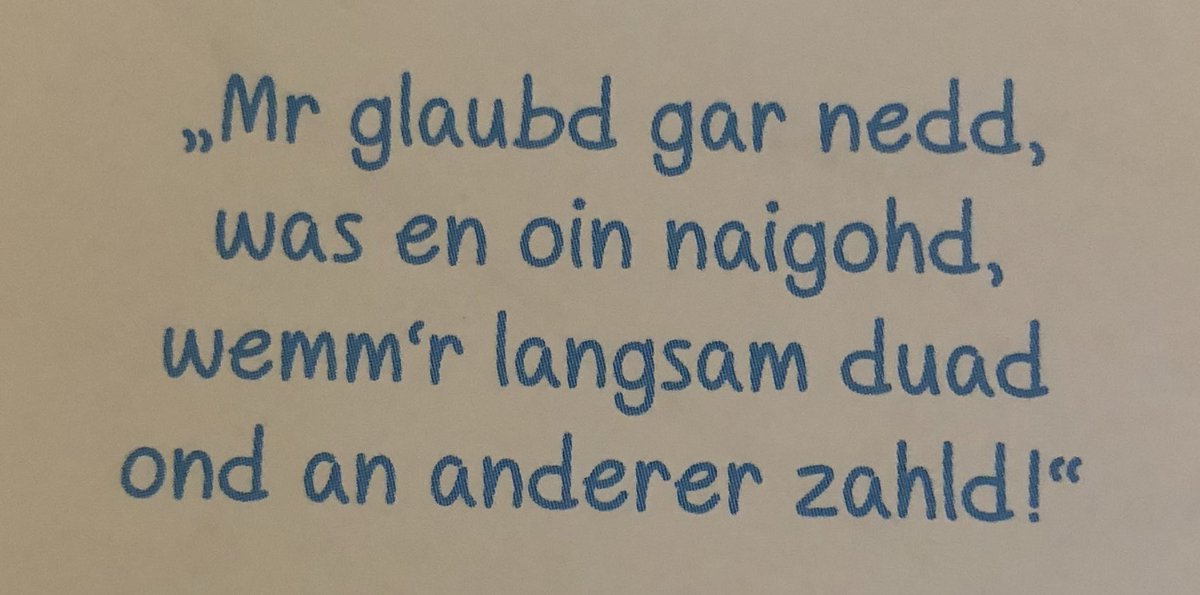 „Mr glaubd gar nedd,
was en oin naigohd,
wemm‘r langsam duad
ond an anderer zahld!“